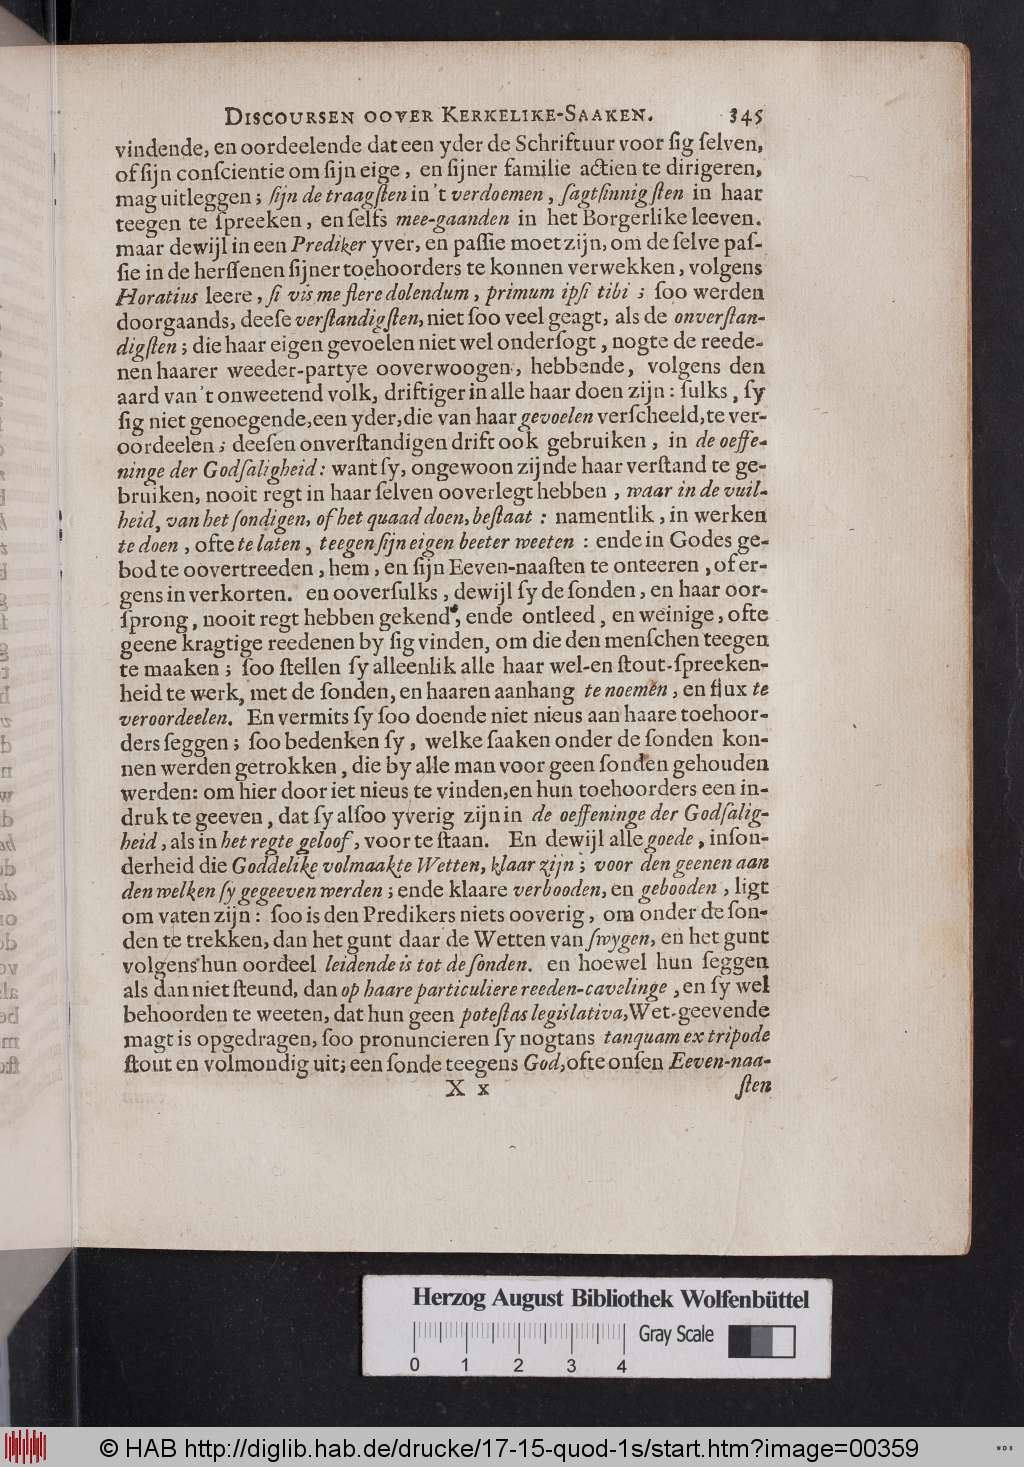 DISCOURSEN OOVER KERKELIKE-SAAKEN. 345
vindende, en oordeelende dat een yder de Schriftuur voor ſig ſelven,
of ſijn conſcientie om ſijn eige, en ſijner familie actien te dirigeren,
mag uitleggen; ſijn de traagſten in 't verdoemen, ſagtſinnigſten in haar
teegen te ſpreeken, en ſelfs mee-gaanden in het Borgerlike leeven.
maar dewijl in een Prediker yver, en paſſie moet zijn, om de ſelve paſ-
ſie in de herſſenen ſijner toehoorders te konnen verwekken, volgens
Horatius leere, ſi vis me flere dolendum, primum ipſi tibi; ſoo werden
doorgaands, deeſe verſtandigſten, niet ſoo veel geagt, als de onverſtan-
digſten; die haar eigen gevoelen niet wel onderſogt, nogte de reede-
nen haarer weeder-partye ooverwoogen, hebbende, volgens den
aard van 't onweetend volk, driftiger in alle haar doen zijn: ſulks, ſy
ſig niet genoegende, een yder, die van haar gevoelen verſcheeld, te ver-
oordeelen; deeſen onverſtandigen drift ook gebruiken, in de oeffe-
ninge der Godſaligheid: want ſy, ongewoon zijnde haar verſtand te ge-
bruiken, nooit regt in haar ſelven ooverlegt hebben, waar in de vuil-
heid, van het ſondigen, of het quaad doen, beſtaat: namentlik, in werken
te doen, ofte te laten, teegen ſijn eigen beeter weeten: ende in Godes ge-
bod te oovertreeden, hem, en ſijn Eeven-naaſten te onteeren, of er-
gens in verkorten. en ooverſulks, dewijl ſy de ſonden, en haar oor-
ſprong, nooit regt hebben gekend, ende ontleed, en weinige, ofte
geene kragtige reedenen by ſig vinden, om die den menſchen teegen
te maaken; ſoo ſtellen ſy alleenlik alle haar wel-en ſtout-ſpreeken-
heid te werk, met de ſonden, en haaren aanhang te noemen, en flux te
veroordeelen. En vermits ſy ſoo doende niet nieus aan haare toehoor-
ders ſeggen; ſoo bedenken ſy, welke ſaaken onder de ſonden kon-
nen werden getrokken, die by alle man voor geen ſonden gehouden
werden: om hier door iet nieus te vinden, en hun toehoorders een in-
druk te geeven, dat ſy alſoo yverig zijn in de oeffeninge der Godſalig-
heid, als in het regte geloof, voor te ſtaan. En dewijl alle goede, inſon-
derheid die Goddelike volmaakte Wetten, klaar zijn; voor den geenen aan
den welken ſy gegeeven werden; ende klaare verbooden, en gebooden, ligt
om vaten zijn: ſoo is den Predikers niets ooverig, om onder de ſon-
den te trekken, dan het gunt daar de Wetten van ſwygen, en het gunt
volgens hun oordeel leidende is tot de ſonden. en hoewel hun ſeggen
als dan niet ſteund, dan op haare particuliere reeden-cavelinge, en ſy wel
behoorden te weeten, dat hun geen poteſtas legislativa, Wet-geevende
magt is opgedragen, ſoo pronuncieren ſy nogtans tanquam ex tripode
ſtout en volmondig uit; een ſonde teegens God, ofte onſen Eeven-naa-
X x ſten
Herzog August Bibliothek Wolfenbüttel
Gray Scale
0 1 2 3 4
© HAB http://diglib.hab.de/drucke/17-15-quod-1s/start.htm?image=00359